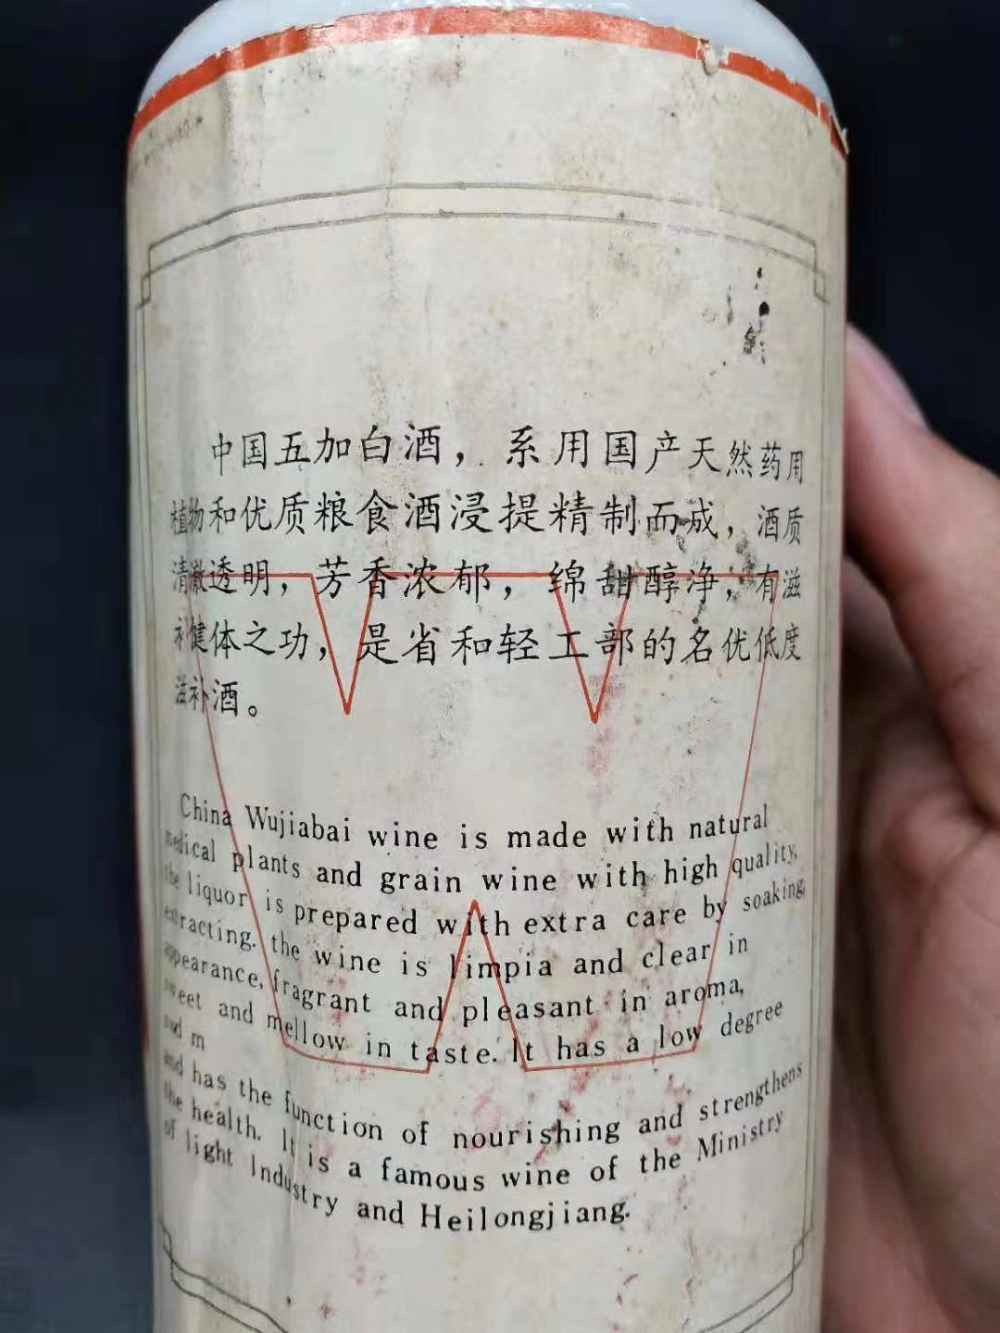 中国五加白酒，系用国产天然药用
植物和优质粮食酒浸提精制而成，酒质
清澈透明，芳香浓郁，绵甜醇净，有滋
补健体之功，是省和轻工部的名优低度
滋补酒。
China Wujiabai wine is made with natural
medical plants and grain wine with high quality,
the liquor is prepared with extra care by soaking,
extracting. the wine is limpia and clear in
appearance, fragrant and pleasant in aroma,
sweet and mellow in taste. It has a low degree
and m
and has the function of nourishing and strengthens
the health. It is a famous wine of the Ministry
of light Industry and Heilongjiang.